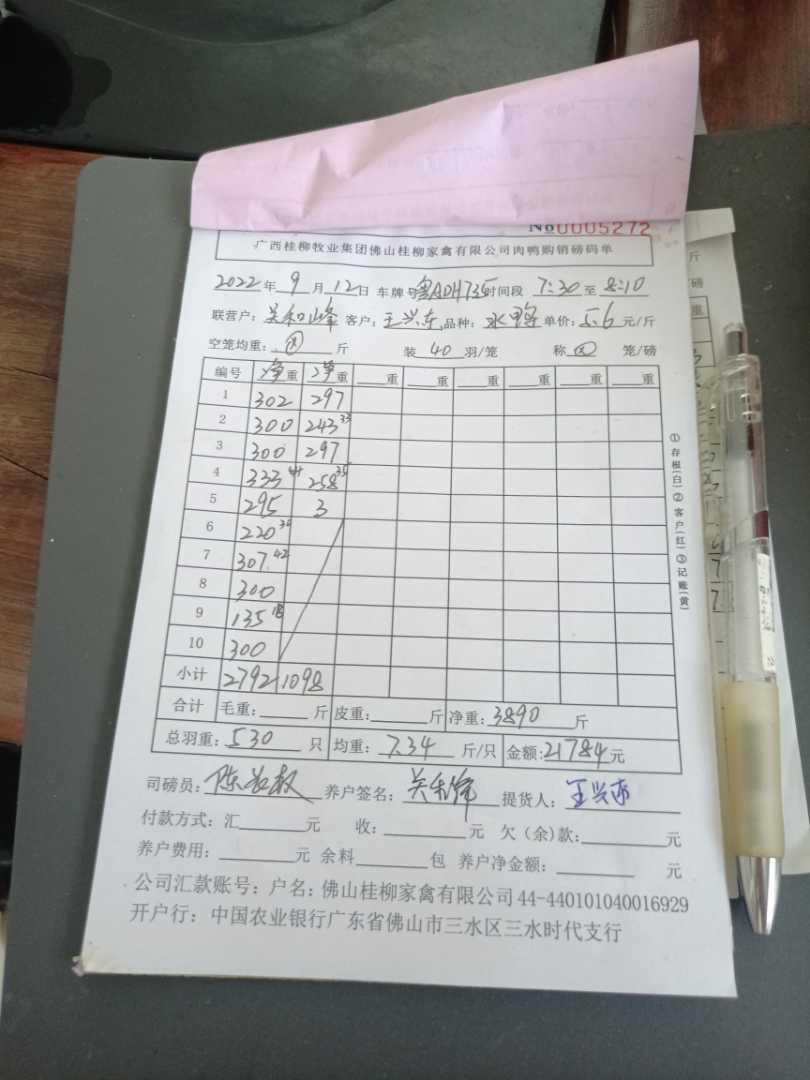 No0005272
广西桂柳牧业集团佛山桂柳家禽有限公司肉鸭购销磅码单
2022年9月12日 车牌号粤ADH735时间段 7:30至8:10
联营户: 关和峰 客户: 王兴东 品种: 水鸭 单价: 5.6元/斤
空笼均重: 斤 装 40 羽/笼 称 笼/磅
编号 净重 净重 重 重 重 重 重 重
1 302 297
2 300 243 33
3 300 297
4 333 44 258 35
5 295 3
6 220 30
7 307 42
8 300
9 135 18
10 300
小计 2792 1098
合计 毛重: 斤 皮重: 斤 净重: 3890 斤
总羽重: 530 只 均重: 7.34 斤/只 金额: 21784元
司磅员: 养户签名: 提货人: 王兴东
付款方式: 汇 元 收: 元 欠(余)款: 元
养户费用: 元 余料 包 养户净金额: 元
公司汇款账号: 户名: 佛山桂柳家禽有限公司 44-440101040016929
开户行: 中国农业银行广东省佛山市三水区三水时代支行
①存根(白)②客户(红)③记账(黄)
斤
/磅
重